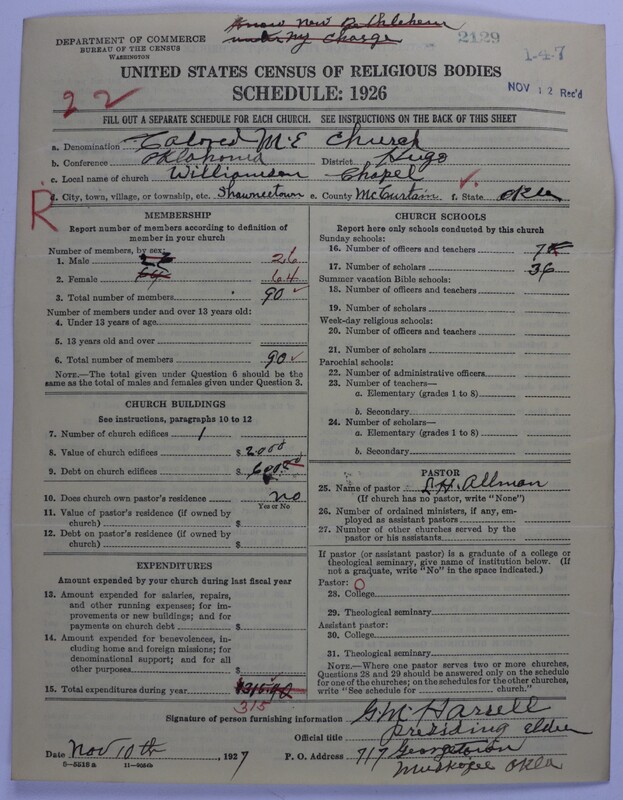 Know now Bethlehem
under my charge
2129
1-4-7
NOV 12 Rec'd
DEPARTMENT OF COMMERCE
BUREAU OF THE CENSUS
WASHINGTON
UNITED STATES CENSUS OF RELIGIOUS BODIES
SCHEDULE: 1926
22
FILL OUT A SEPARATE SCHEDULE FOR EACH CHURCH. SEE INSTRUCTIONS ON THE BACK OF THIS SHEET
a. Denomination Colored M.E Church
b. Conference Oklahoma District Hugo
c. Local name of church Williamson Chapel
d. City, town, village, or township, etc. Shawneetown e. County McCurtain f. State Okla
R
MEMBERSHIP
Report number of members according to definition of
member in your church
Number of members, by sex:
1. Male 26
2. Female 64 64
3. Total number of members 90
Number of members under and over 13 years old:
4. Under 13 years of age
5. 13 years old and over
6. Total number of members 90
NOTE.—The total given under Question 6 should be
the same as the total of males and females given under Question 3.
CHURCH BUILDINGS
See instructions, paragraphs 10 to 12
7. Number of church edifices 1
8. Value of church edifices $ 2000
9. Debt on church edifices $ 600.00
10. Does church own pastor's residence no
Yes or No
11. Value of pastor's residence (if owned by
church) $
12. Debt on pastor's residence (if owned by
church) $
EXPENDITURES
Amount expended by your church during last fiscal year
13. Amount expended for salaries, repairs,
and other running expenses; for im-
provements or new buildings; and for
payments on church debt $
14. Amount expended for benevolences, in-
cluding home and foreign missions; for
denominational support; and for all
other purposes $
15. Total expenditures during year $315.40
315
CHURCH SCHOOLS
Report here only schools conducted by this church
Sunday schools:
16. Number of officers and teachers 7
17. Number of scholars 36
Summer vacation Bible schools:
18. Number of officers and teachers
19. Number of scholars
Week-day religious schools:
20. Number of officers and teachers
21. Number of scholars
Parochial schools:
22. Number of administrative officers
23. Number of teachers—
a. Elementary (grades 1 to 8)
b. Secondary
24. Number of scholars—
a. Elementary (grades 1 to 8)
b. Secondary
PASTOR
25. Name of pastor L.H. Allman
(If church has no pastor, write "None")
26. Number of ordained ministers, if any, em-
ployed as assistant pastors
27. Number of other churches served by the
pastor or his assistants
If pastor (or assistant pastor) is a graduate of a college or
theological seminary, give name of institution below. (If
not a graduate, write "No" in the space indicated.)
Pastor: O
28. College
29. Theological seminary
Assistant pastor:
30. College
31. Theological seminary
NOTE.—Where one pastor serves two or more churches,
Questions 28 and 29 should be answered only on the schedule
for one of the churches; on the schedules for the other churches,
write "See schedule for church."
Signature of person furnishing information G.M. Harrell
Official title presiding elder
Date Nov 10th, 1927 P. O. Address 717 Georgetown
Muskogee Okla
6-5515a 11-9054b